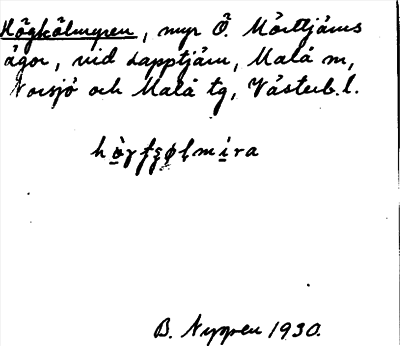 Högkölmyren, myr Ö. Mörttjärns
ägor, vid Lapptjärn, Malå sn,
Norsjö och Malå tg, Västerb. l.
B. Nygren 1930.